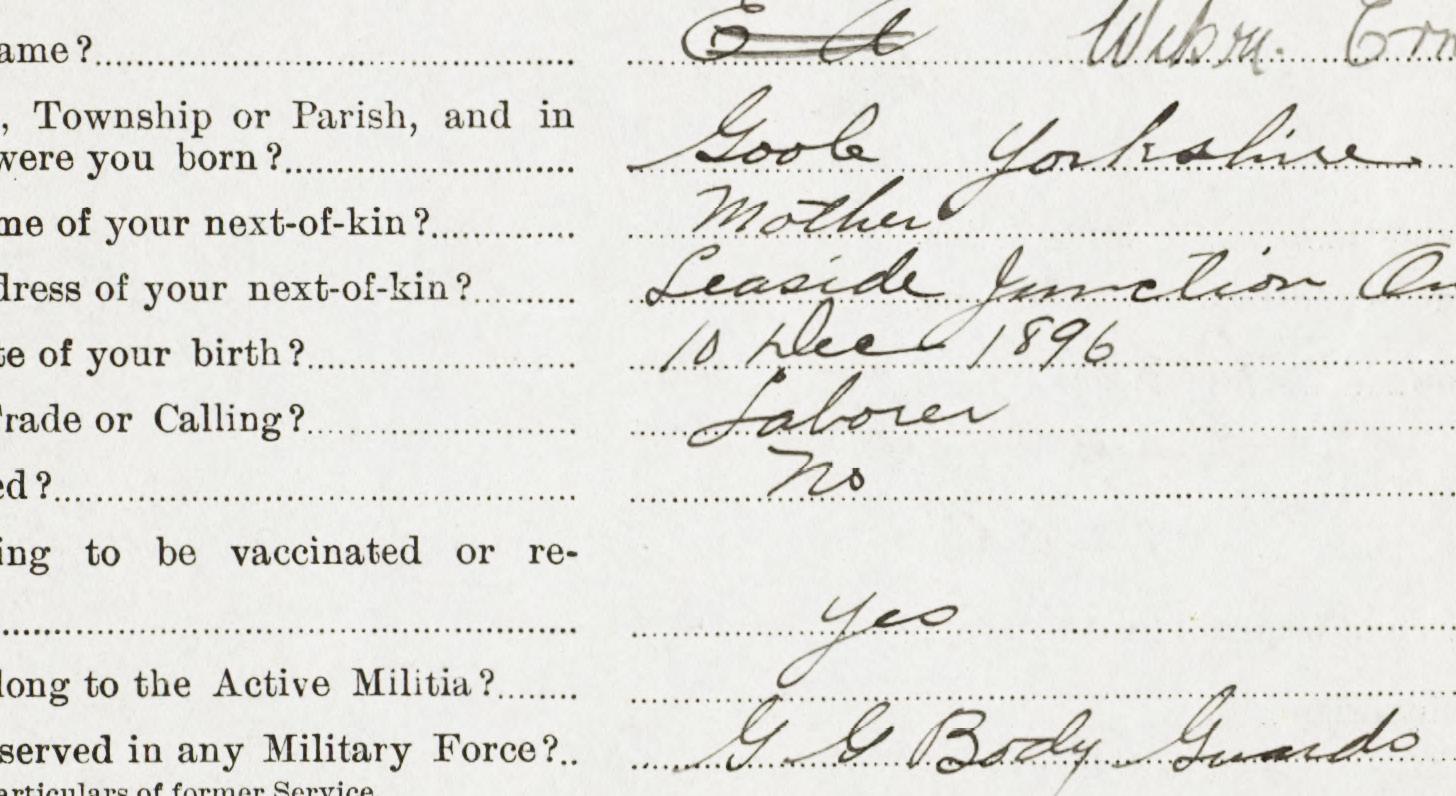 ame?.......... E A Wilson. Ern
, Township or Parish, and in
were you born?.......... Goole Yorkshire.
me of your next-of-kin?.......... Mother
dress of your next-of-kin?.......... Leaside Junction On
te of your birth?.......... 10 Dec 1896
Trade or Calling?.......... Laborer
ed?.......... No
ing to be vaccinated or re-
.......... yes
long to the Active Militia?..........
served in any Military Force?.. G G Body Guards
articulars of former Service.